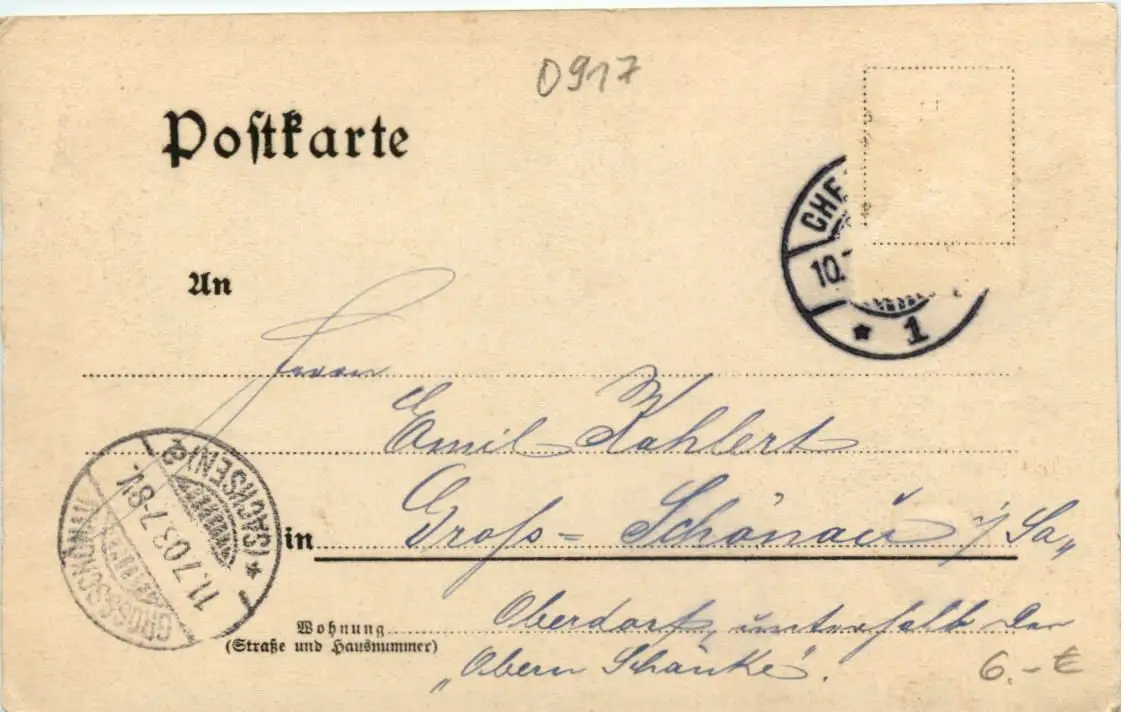 0917
Postkarte
CHE
10.7
* 1
An
Herrn
Emil Kohlert
in Gross-Schönau i/Sa„
Wohnung Oberdorf, unterhalb der
(Straße und Hausnummer)
„Obern Schänke".
GROSSSCHÖNAU * (SACHSEN) e
11.7 03.7-8V.
6.-€